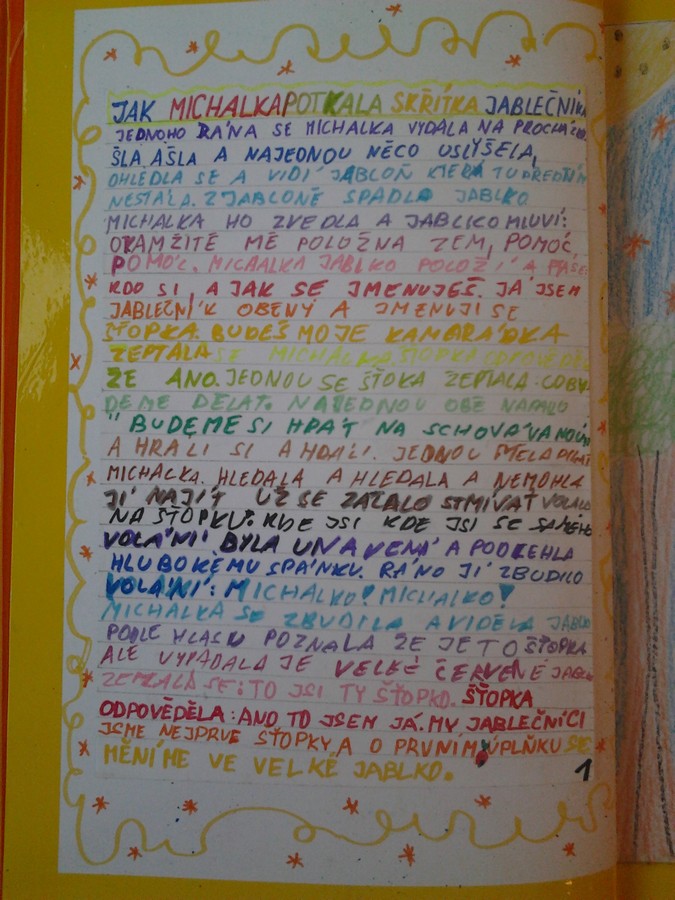 JAK MICHALKA POTKALA SKŘÍTKA JABLEČNÍKA
JEDNOHO RÁNA SE MICHALKA VYDALA NA PROCHÁZKU.
ŠLA, AŠLA A NAJEDNOU NĚCO USLYŠELA,
OHLÉDLA SE A VIDÍ JABLOŇ KTERÁ TU PŘEDTÍM
NESTÁLA. Z JABLONĚ SPADLO JABLKO
MICHALKA HO ZVEDLA A JABLKO MLUVÍ:
OKAMŽITĚ MĚ POLOŽ NA ZEM, POMOC,
POMOC. MICHALKA JABLKO POLOŽÍ A PTÁ SE
KDO SI, A JAK SE JMENUJEŠ. JÁ JSEM
JABLEČNÍK OBENÝ A JMENUJI SE
ŠŤOPKA. BUDEŠ MOJE KAMARÁDKA
ZEPTALA SE MICHALKA. ŠŤOPKA ODPOVĚDĚLA
ŽE ANO. JEDNOU SE ŠŤOKA ZEPTALA: CO BY
DEME DĚLAT. NAJEDNOU OBĚ NAPADLO
"BUDEME SI HRÁT NA SCHOVÁVANOU"
A HRÁLI SI A HRÁLI. JEDNOU
MICHALKA. HLEDALA A HLEDALA A NEMOHLA
JÍ NAJÍT UŽ SE ZAČALO STMÍVAT VOLALA
NA ŠŤOPKU: KDE JSI KDE JSI SE SAMÉHO
VOLÁNÍ BYLA UNAVENÁ A PODLEHLA
HLUBOKÉMU SPÁNKU. RÁNO JÍ ZBUDILO
VOLÁNÍ: MICHALKO! MICHALKO!
MICHALKA SE ZBUDILA A VIDĚLA JABLKO
PODLE HLASU POZNALA ŽE JE TO ŠŤOPKA
ALE VYPADALA JE VELKÉ ČERVENÉ JABLKO
ZEPTALA SE: TO JSI TY ŠŤOPKO. ŠŤOPKA
ODPOVĚDĚLA: ANO TO JSEM JÁ. MY JABLEČNÍCI
JSME NEJPRVE ŠŤOPKY A O PRVNÍM ÚPLŇKU SE
MĚNÍME VE VELKÉ JABLKO.
1